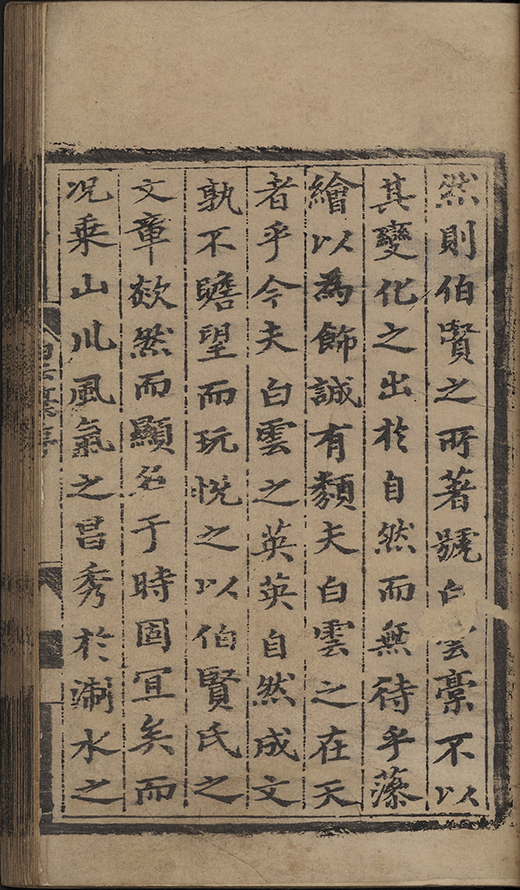 然則伯賢之所著號白雲稾不以
其變化之出於自然而無待乎藻
繪以為飾誠有類夫白雲之在天
者乎今夫白雲之英英自然成文
孰不瞻望而玩悅之以伯賢氏之
文章欻然而顯名于時固冝矣而
况乗山川風氣之昌秀於淛水之
白雲稾序